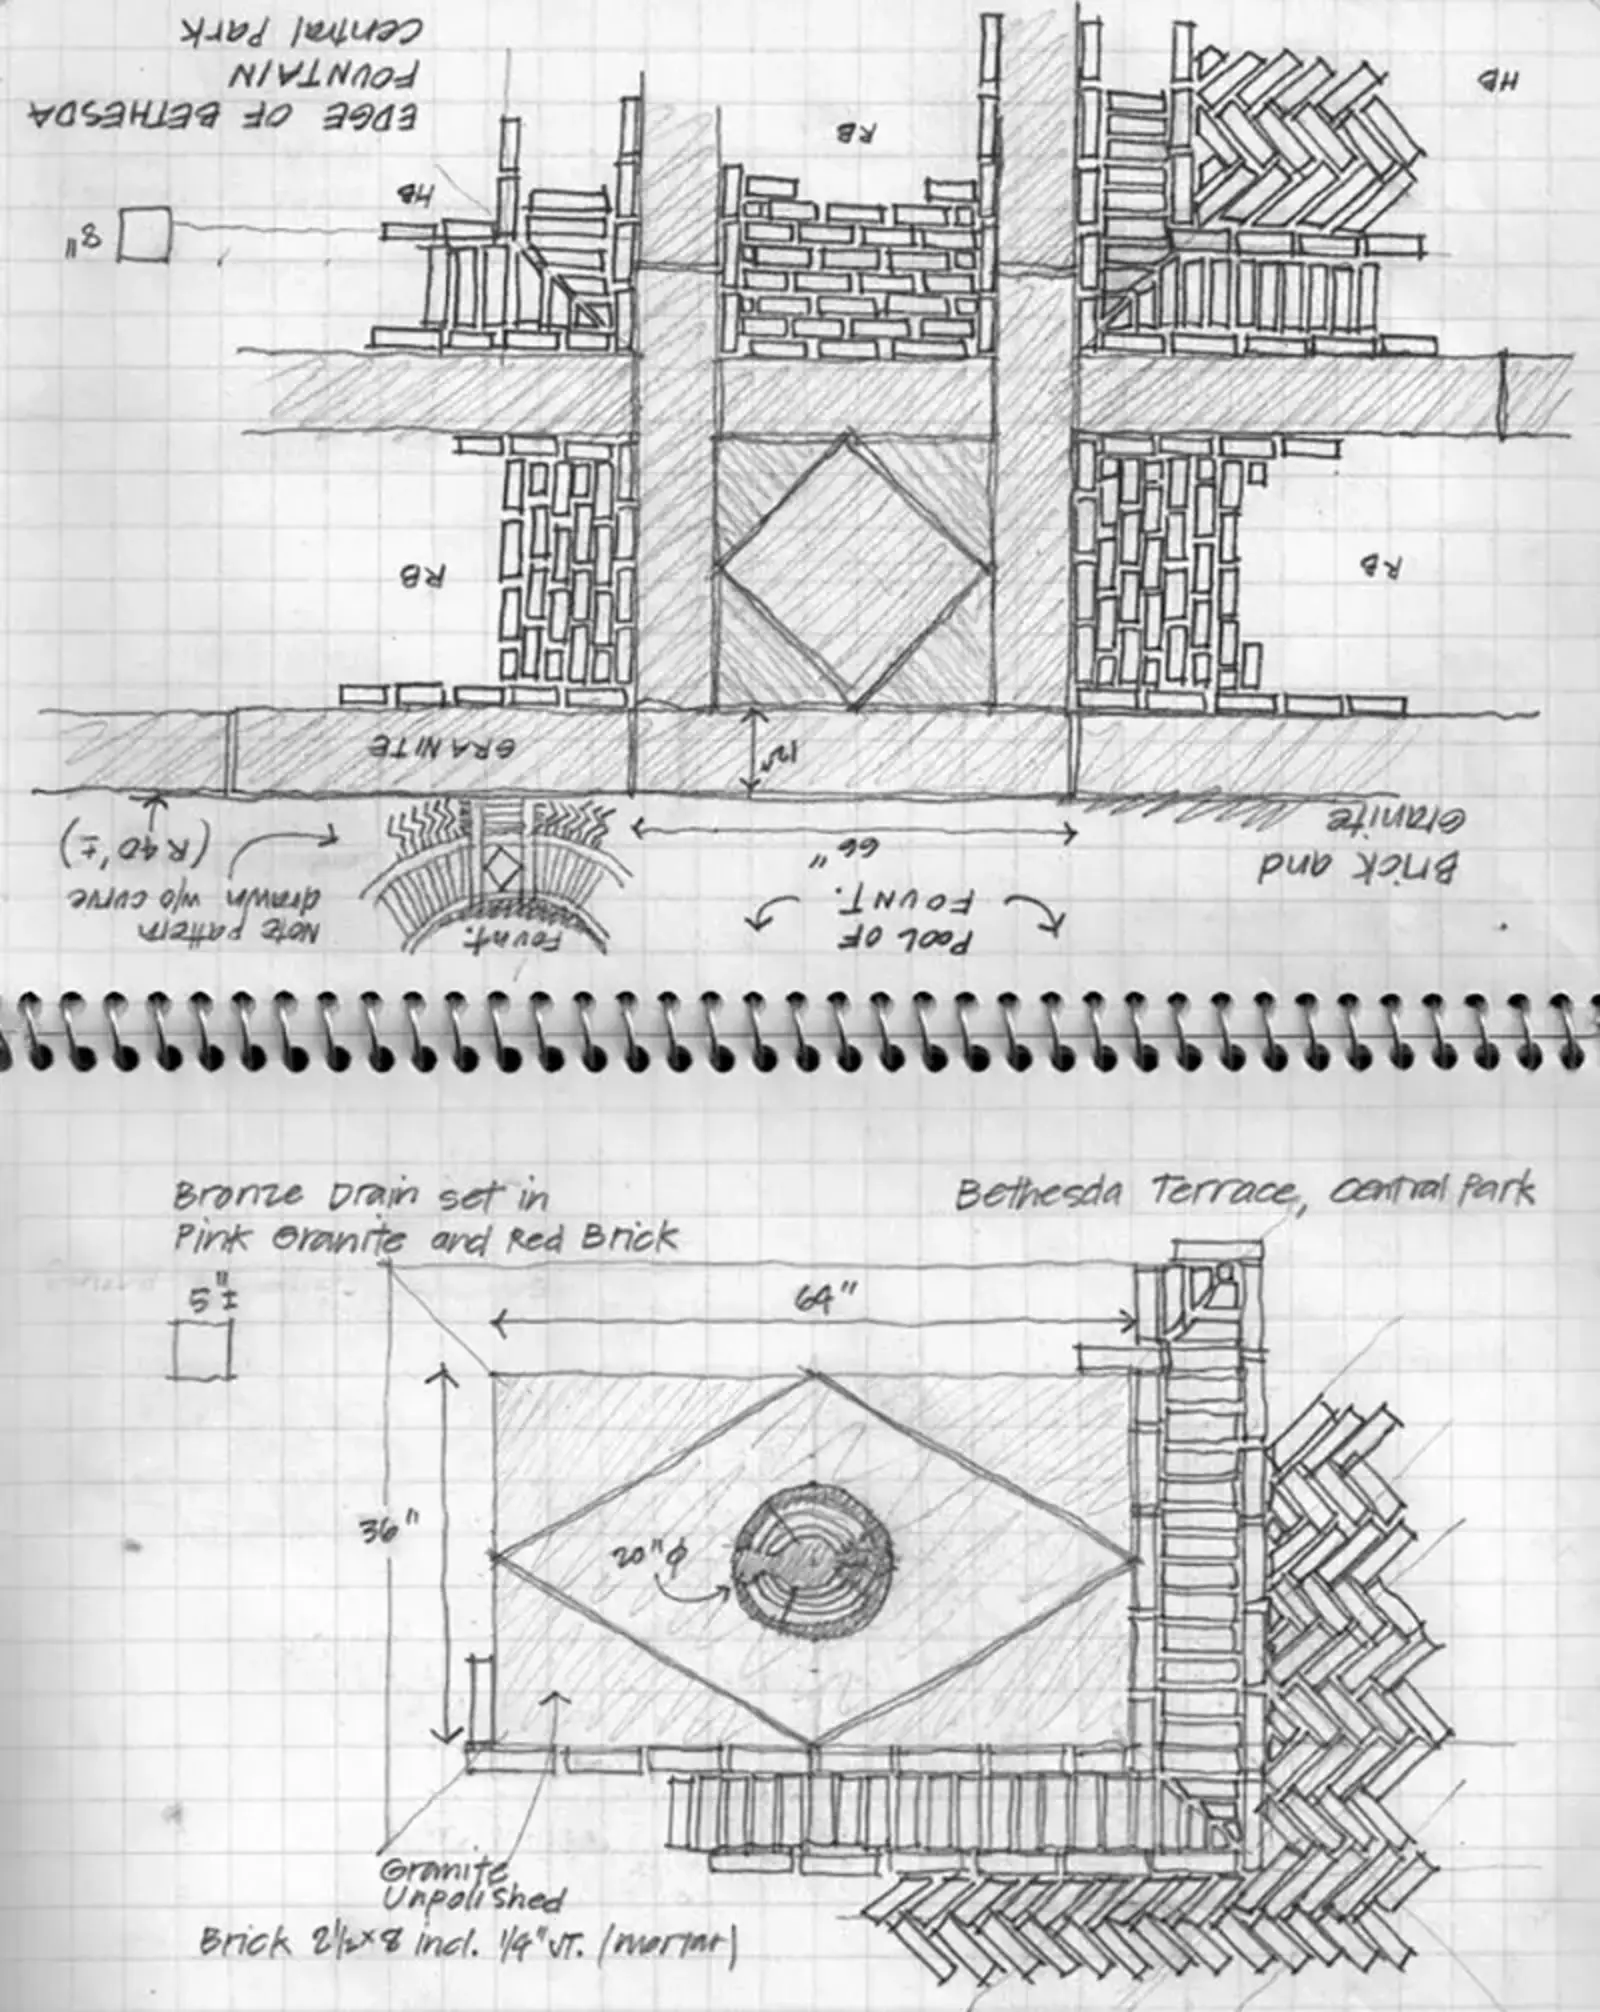 EDGE OF BETHESDA
FOUNTAIN
Central Park
HB
RB
HB
8"
RB
RB
GRANITE
12"
66"
Brick and
Granite
POOL OF
FOUNT.
Fount.
Note pattern
drawn w/o curve
(R 40' ±)
Bronze Drain set in
Pink Granite and Red Brick
Bethesda Terrace, Central Park
5"±
64"
36"
20"φ
Granite
Unpolished
Brick 2½x8 incl. 1/4" JT. (mortar)